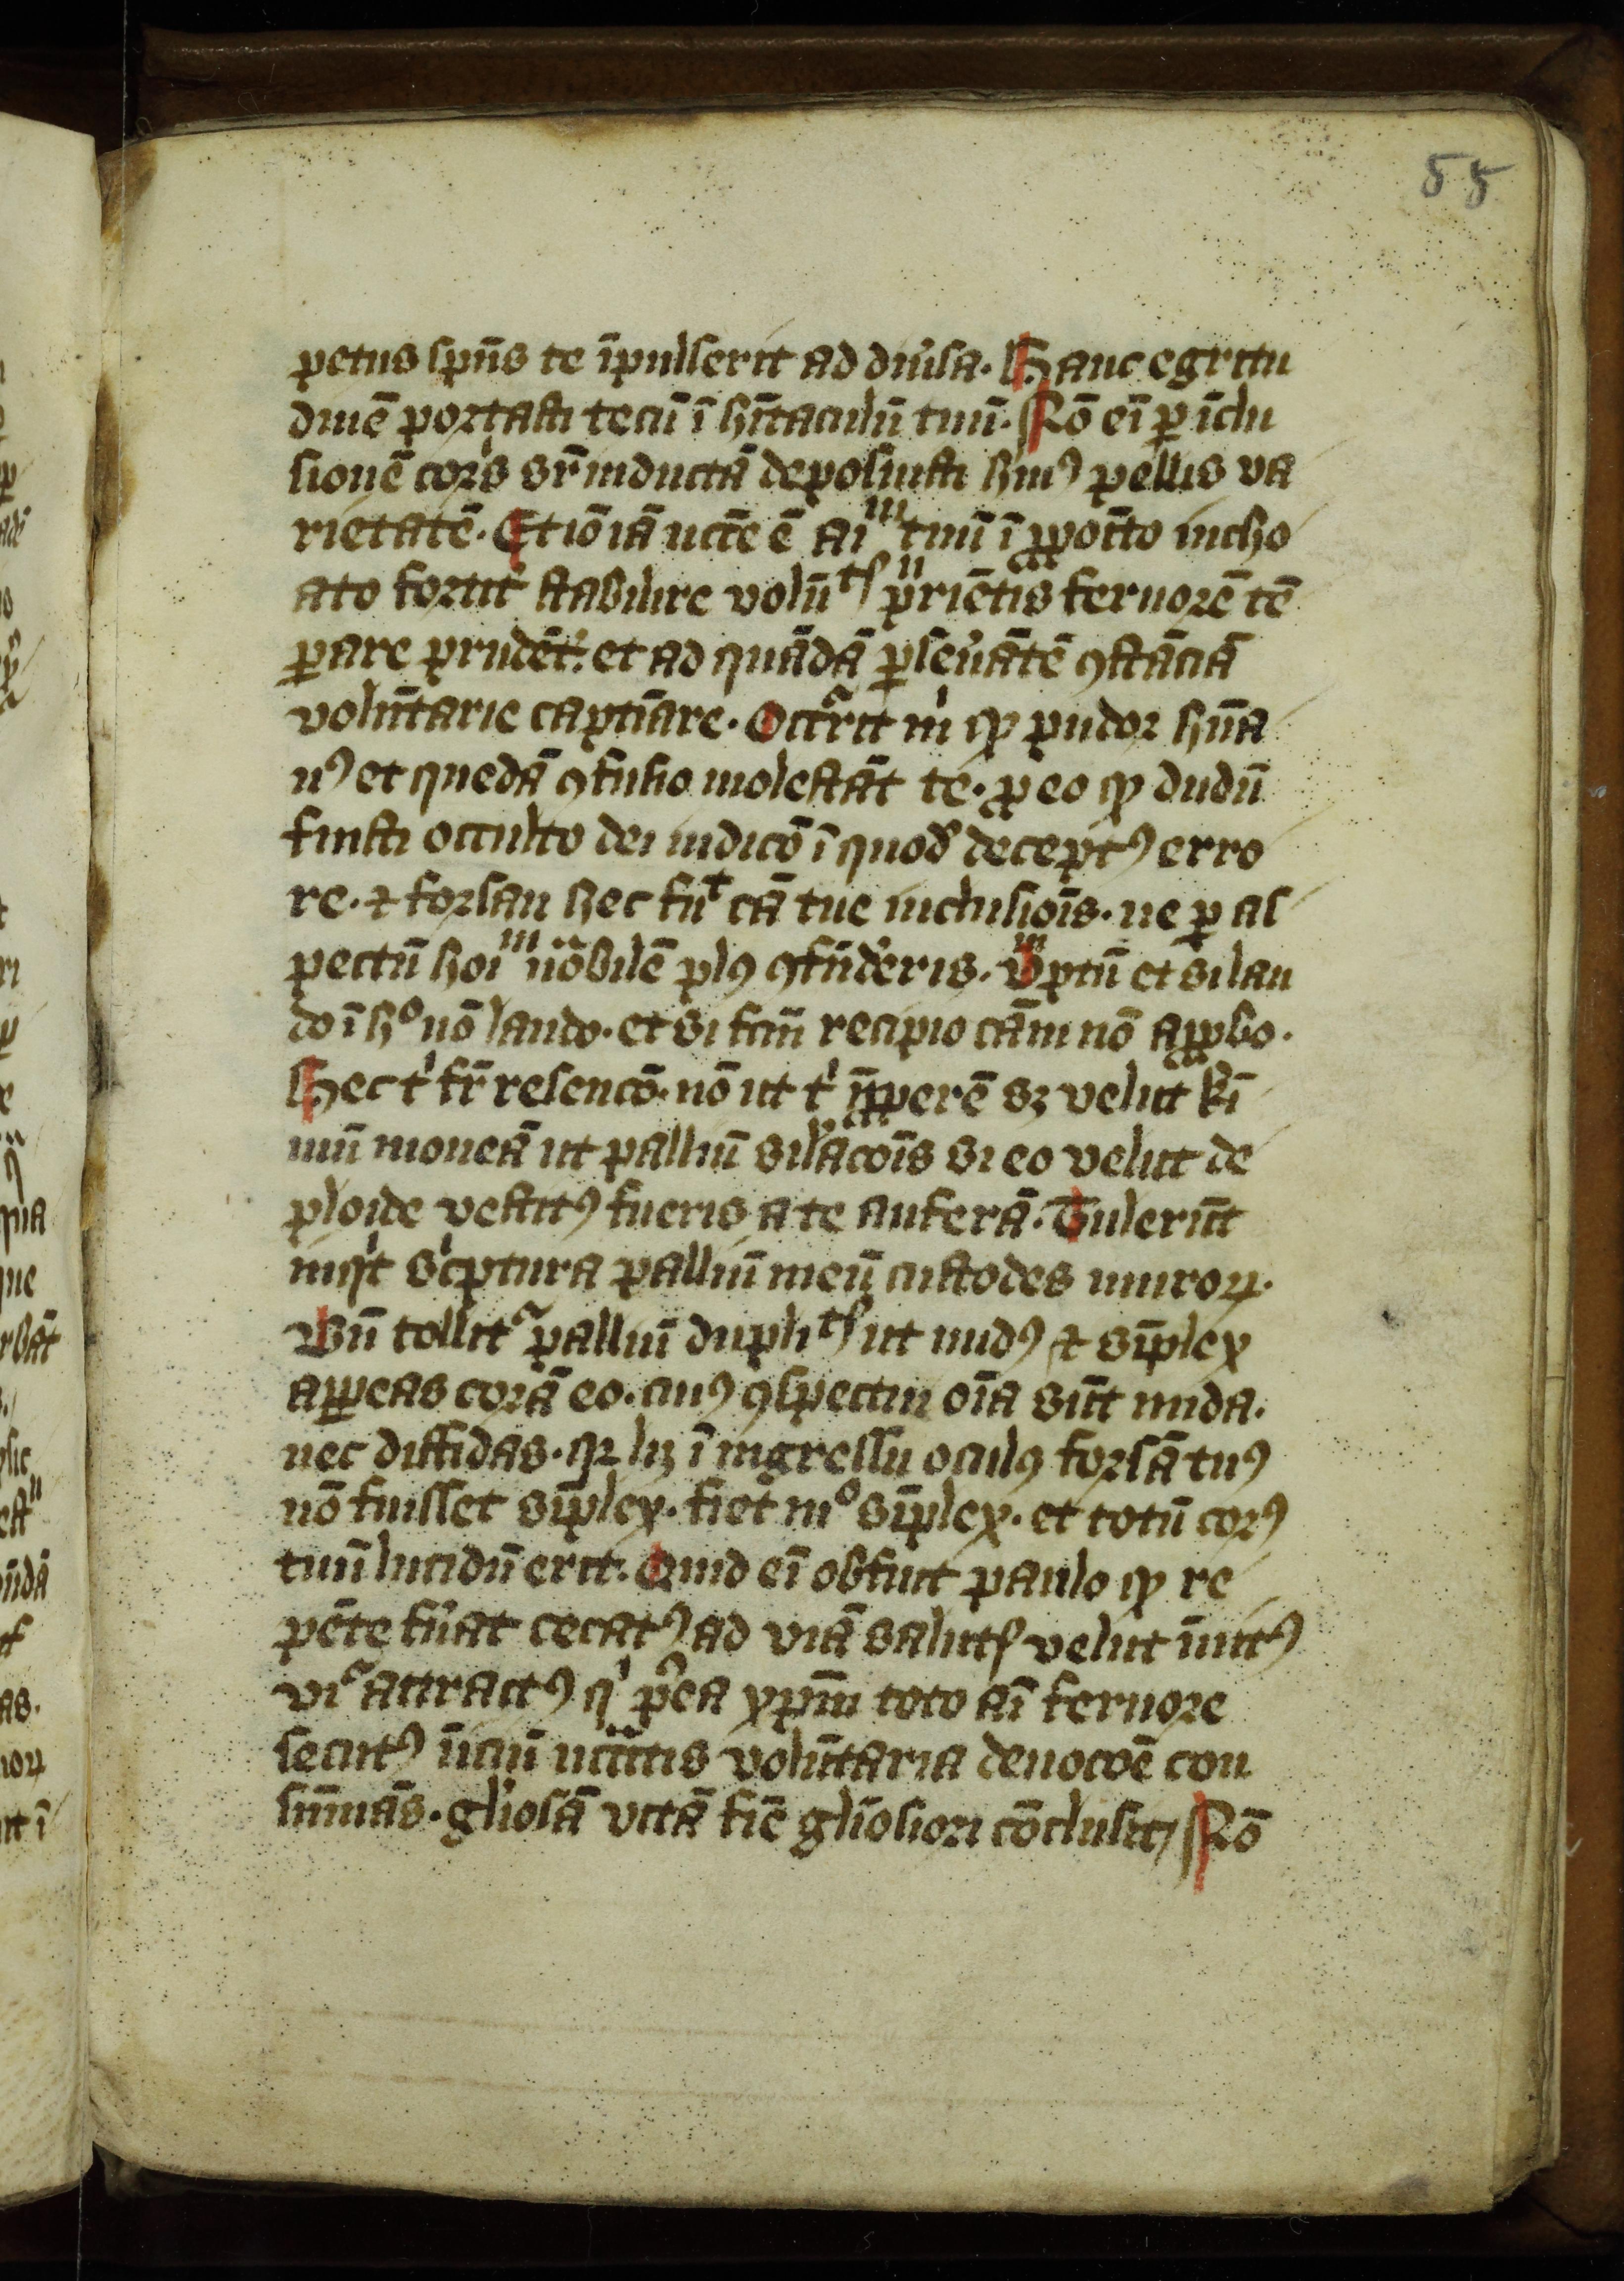 55
petus spūs te īpulserit ad diūsa. Hanc egritu
dinē portasti tecū ī hītaculū tuū. Nō eī ꝑ īclu
sionē corꝑis sr̄inductā deposuisti huiꝰ pellis va
rietatē. Et iō iā ncc̄e ē aīᵐ tuū ī ꝓpoīto incho
ato fortit̾ stabilire volūtꝭ ꝑriētis feruorē tē
ꝑare prudēt̾. et ad quādā ꝑseūātē ꝯstāciā
volūtarie captiuare. Occr̄it m̄ ꝙ pudor hūa
nꝰ et quedā ꝯfusio molestāt te. ꝓ eo ꝙ dudū
fuisti occulto dei iudicō ī quodā deceptꝰ erro
re. ⁊ forsan hec fuͭ cā tue inclusiōis. ne ꝑ as
pectū hoīᵐ nōbilē plꝰ ꝯfūderis. Vꝑtū et si lau
do ī hᵒ nō laudo. et si fcm̄ recipio cām nō aꝓbo.
Hec tⁱ fr̄ resencō. nō ut tⁱ īꝓperē sꝫ velut
mū moneā ut palliū silācōis si eo velut de
ploide vestitꝰ fueris a te auferā. Tulerūt
inqͥt scͥptura palliū meū custodes muroꝝ.
Bn̄ tollitᷓ palliū duplītꝭ ut nudꝰ ⁊ sīplex
aꝑeas corā eo. cuiꝰ ꝯspectui oīa sūt nuda.
nec diffidas. qꝛ lꝫ ī ingressu oculꝰ forsā tuꝰ
nō fuisset sīplex. fiet mᵒ sīplex. et totū corꝰ
tuū lucidū erit. Quid eī obfuit paulo ꝙ re
pēte fūat cecatꝰ ad viā salutꝭ velut īuitꝰ
viͬ attractꝰ qͥ pͦea xp̄m toto aī feruore
secutꝰ ūciū volūtaria deuocōe con
sūmās. gl̄iosā vitā fīe gl̄iosiori cōclusit/ Nō